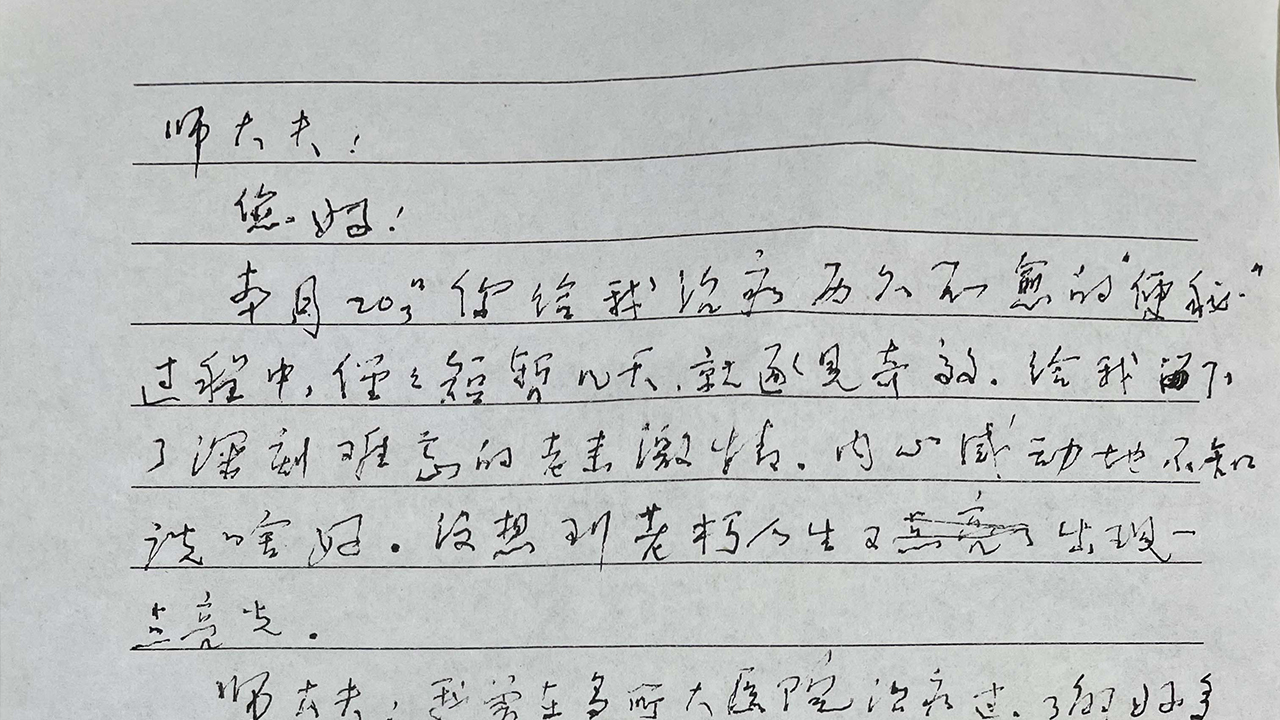 师大夫！
您好！
本月20号你给我治病历久不愈的“便秘”
过程中，仅仅短暂几天，就逐见奇效。给我留下
了深刻难忘的老来激情。内心感动地不知
说啥好。没想到老朽人生又出现一
点亮光。
师大夫：我曾在多所大医院治疗过。了解好多